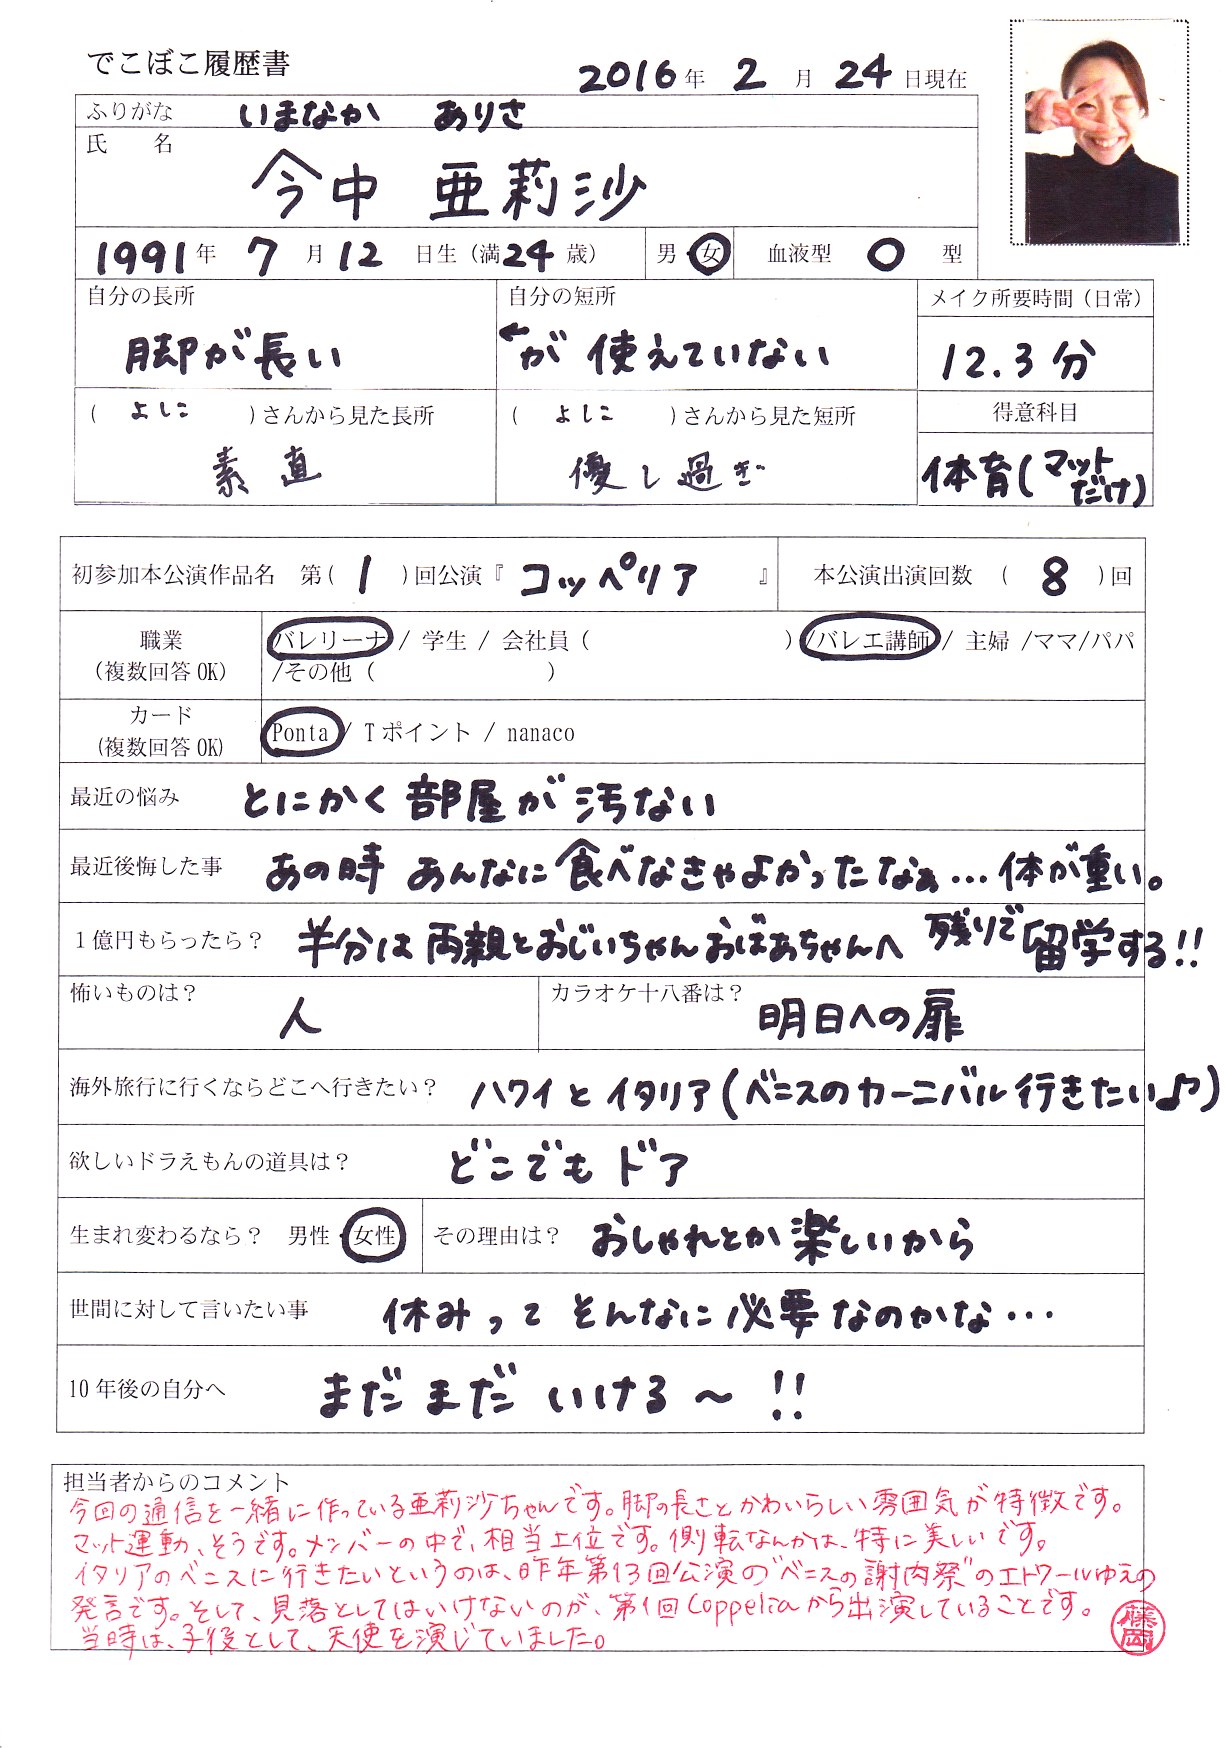 でこぼこ履歴書
2016年 2月 24日現在
ふりがな いまなか ありさ
氏 名
今中 亜莉沙
1991年 7月12日生(満24歳) 男・女 血液型 O 型
自分の長所 自分の短所 メイク所要時間(日常)
脚が長い ←が使えていない 12.3分
(よしこ)さんから見た長所 (よしこ)さんから見た短所 得意科目
素直 優し過ぎ 体育(マットだけ)
初参加本公演作品名 第(1)回公演『コッペリア』 本公演出演回数 (8)回
職業 バレリーナ / 学生 / 会社員( )/バレエ講師 / 主婦 /ママ/パパ
(複数回答OK) /その他( )
カード
(複数回答OK) Ponta / Tポイント / nanaco
最近の悩み とにかく部屋が汚ない
最近後悔した事 あの時 あんなに食べなきゃよかったなぁ…体が重い。
1億円もらったら? 半分は両親とおじいちゃんおばあちゃんへ 残りで留学する!!
怖いものは? 人 カラオケ十八番は? 明日への扉
海外旅行に行くならどこへ行きたい? ハワイとイタリア(ベニスのカーニバル行きたい♪)
欲しいドラえもんの道具は? どこでもドア
生まれ変わるなら? 男性・女性 その理由は? おしゃれとか楽しいから
世間に対して言いたい事 休みってそんなに必要なのかな…
10年後の自分へ まだまだいける〜!!
担当者からのコメント
今回の通信を一緒に作っている亜莉沙ちゃんです。脚の長さとかわいらしい雰囲気が特徴です。
マット運動、そうです。メンバーの中で、相当上位です。側転なんかは、特に美しいです。
イタリアのベニスに行きたいというのは、昨年第13回公演の"ベニスの謝肉祭"のエトワールゆえの
発言です。そして、見落としてはいけないのが、第1回Coppeliaから出演していることです。
当時は、子役として、天使を演じていました。
藤岡